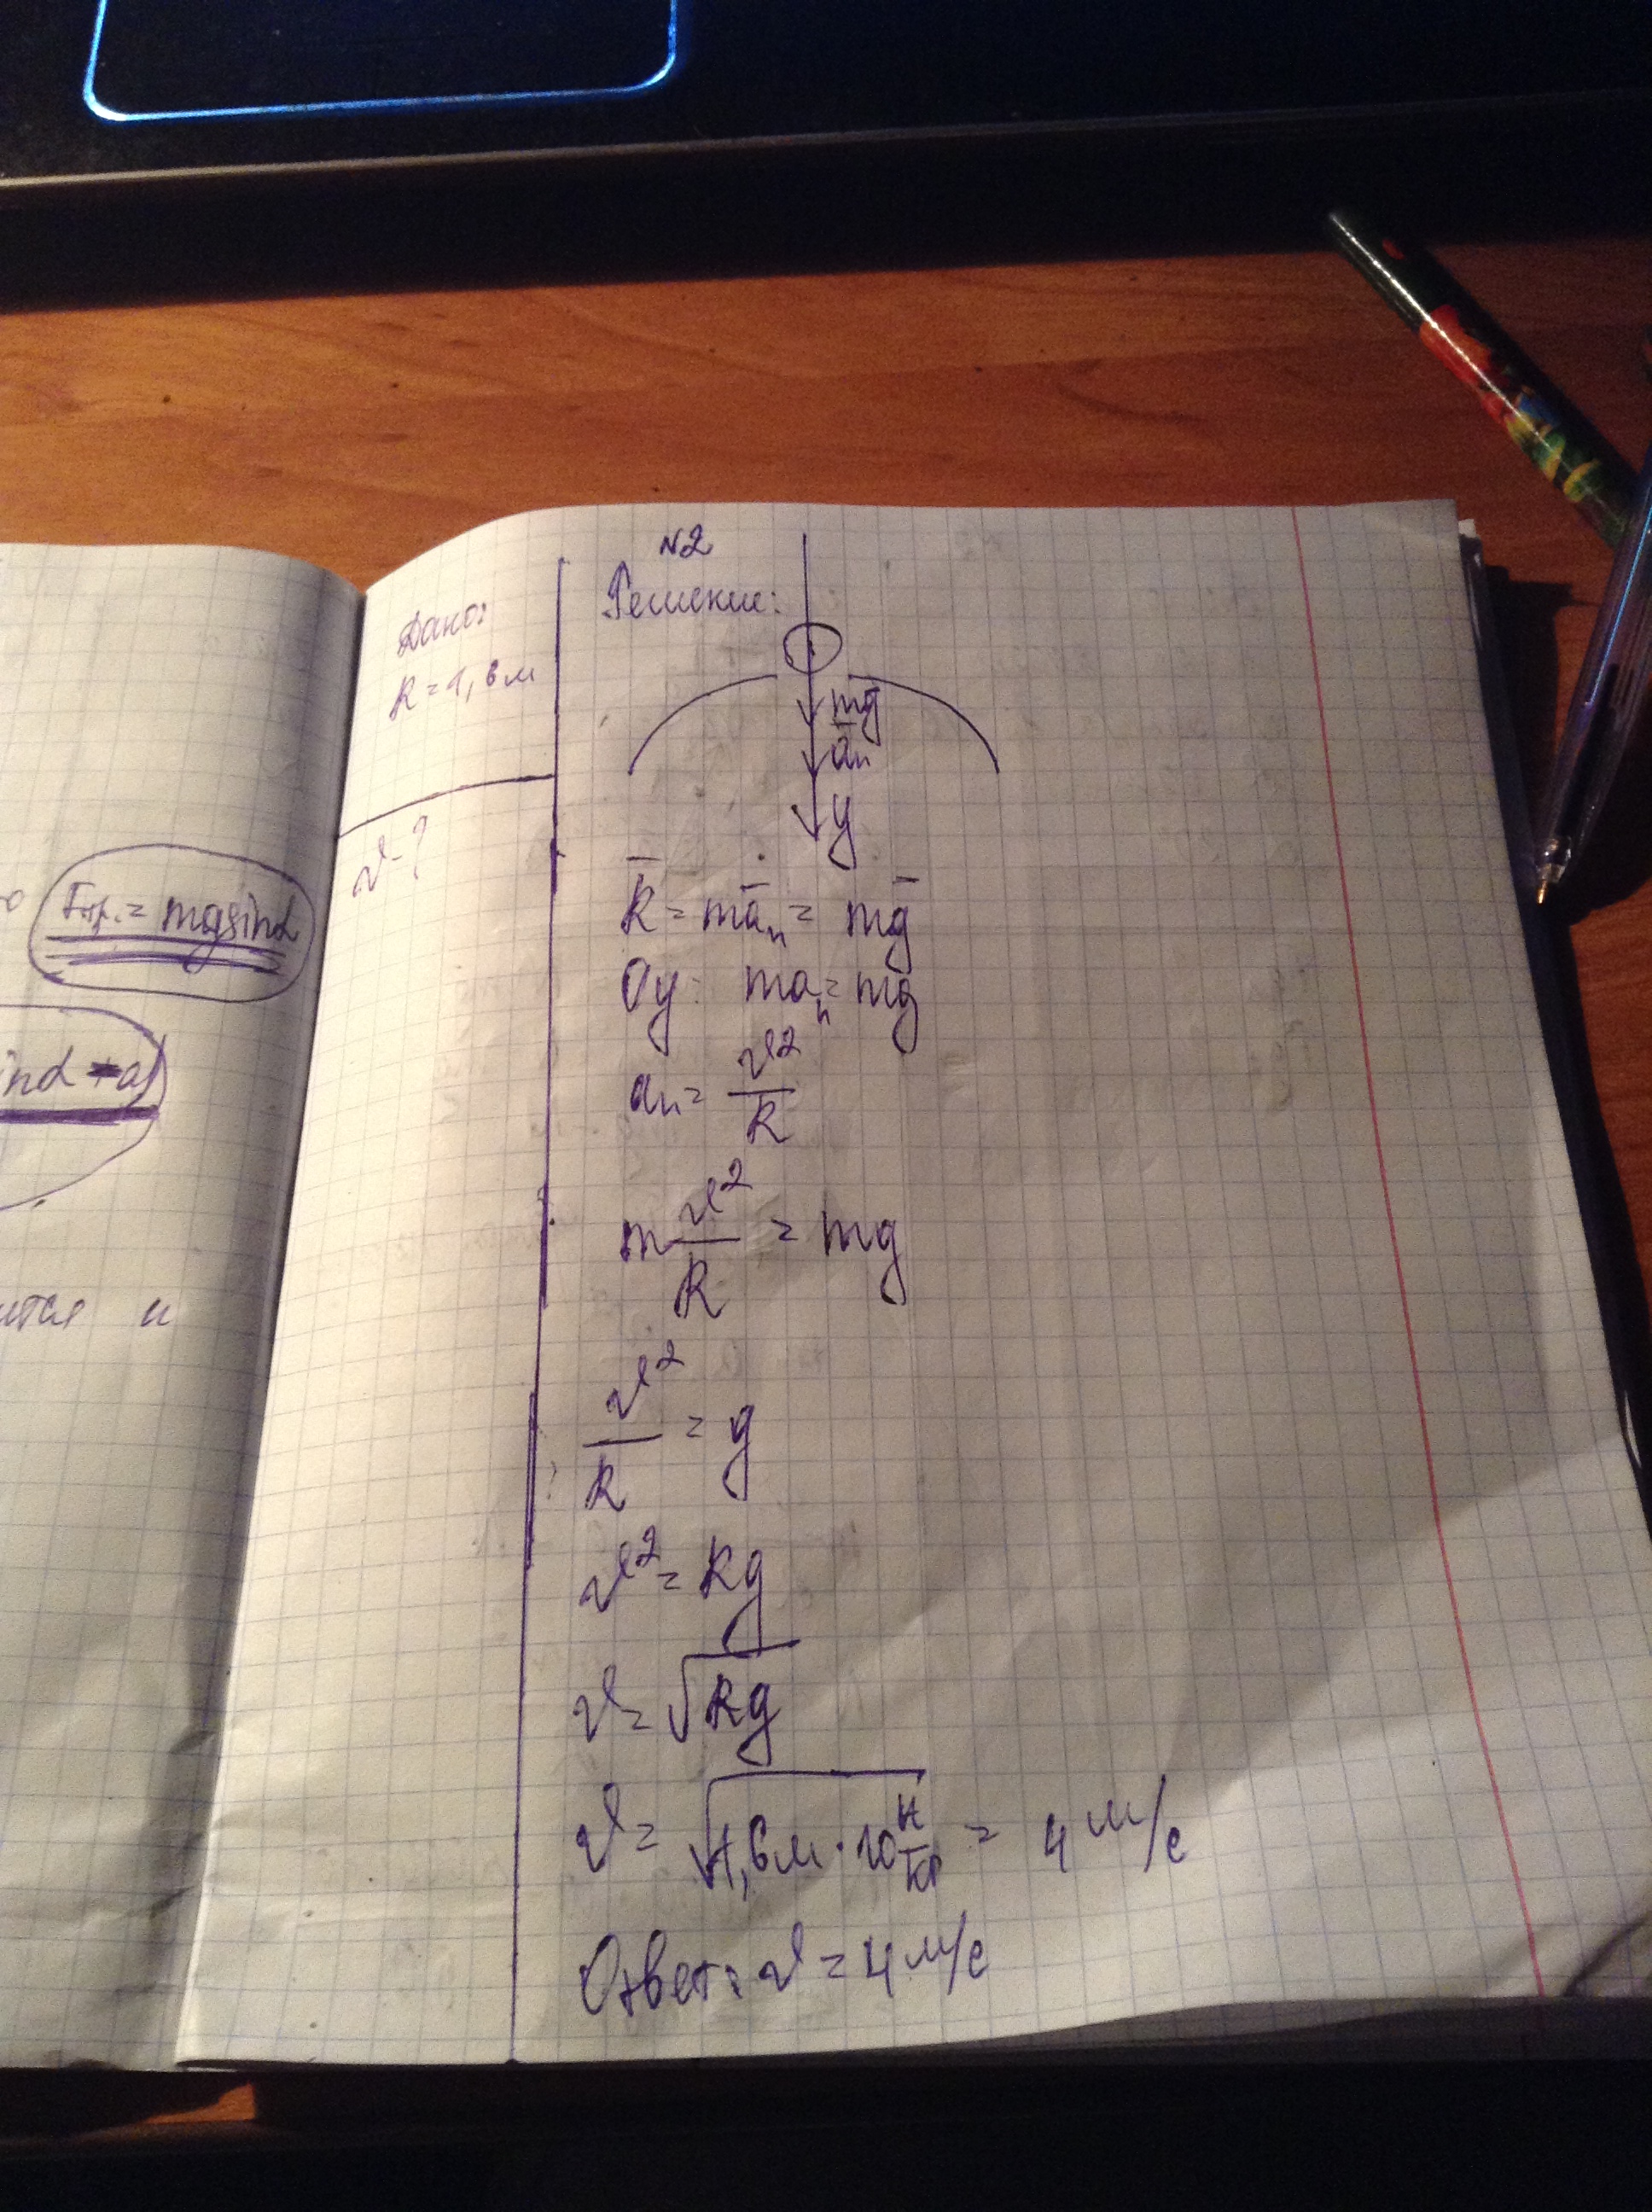 Fтр. = mgsinα
inα + a)
ится и
N2
Дано:
R = 1,6 м
v - ?
Решение:
mg
aн
y
R = maн = mg
Oy: maн = mg
aн = v²/R
m v²/R = mg
v²/R = g
v² = Rg
v = √Rg
v = √1,6 м · 10 Н/кг = 4 м/с
Ответ: v = 4 м/с